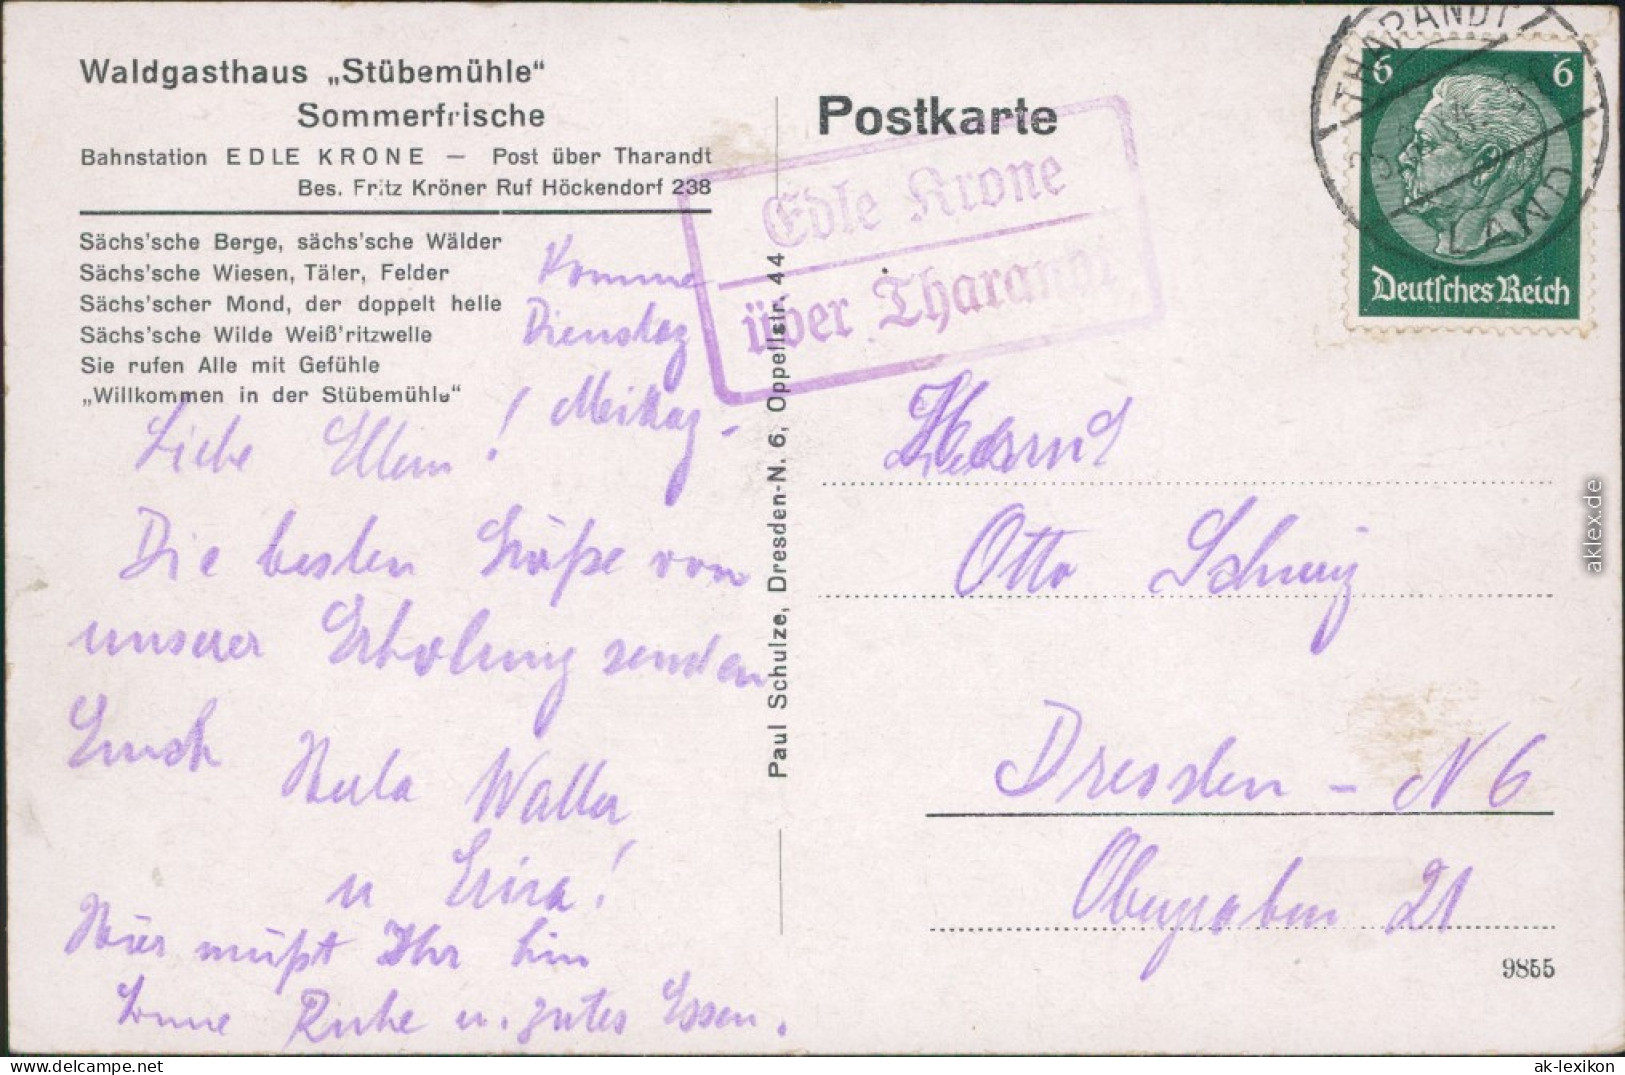 Waldgasthaus „Stübemühle“
Sommerfrische
Bahnstation EDLE KRONE — Post über Tharandt
Bes. Fritz Kröner Ruf Höckendorf 238
Sächs'sche Berge, sächs'sche Wälder
Sächs'sche Wiesen, Täler, Felder
Sächs'scher Mond, der doppelt helle
Sächs'sche Wilde Weiß'ritzwelle
Sie rufen Alle mit Gefühle
„Willkommen in der Stübemühle“
Komme
Dienstag
Mittag.
Liebe Ellern!
Die besten Grüße von
unserer Erholung senden
Euch
Walter
u
Hier müßt Ihr hin
Ruhe u. gutes Essen.
Paul Schulze, Dresden-N. 6, Oppellstr. 44
Postkarte
Edle Krone
über Tharandt
THARANDT
LAND
6 6
Deutsches Reich
Otto
Dresden - N 6
Obergraben 21
9855
aklex.de
https://www.delcampe.net
ak-lexikon